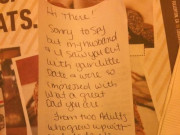 ATS.
Hi There!
Sorry to spy
but my husband
& I saw you out
with your little
date & were so
impressed with
what a great
Dad you are
From two Adults
who grew up with